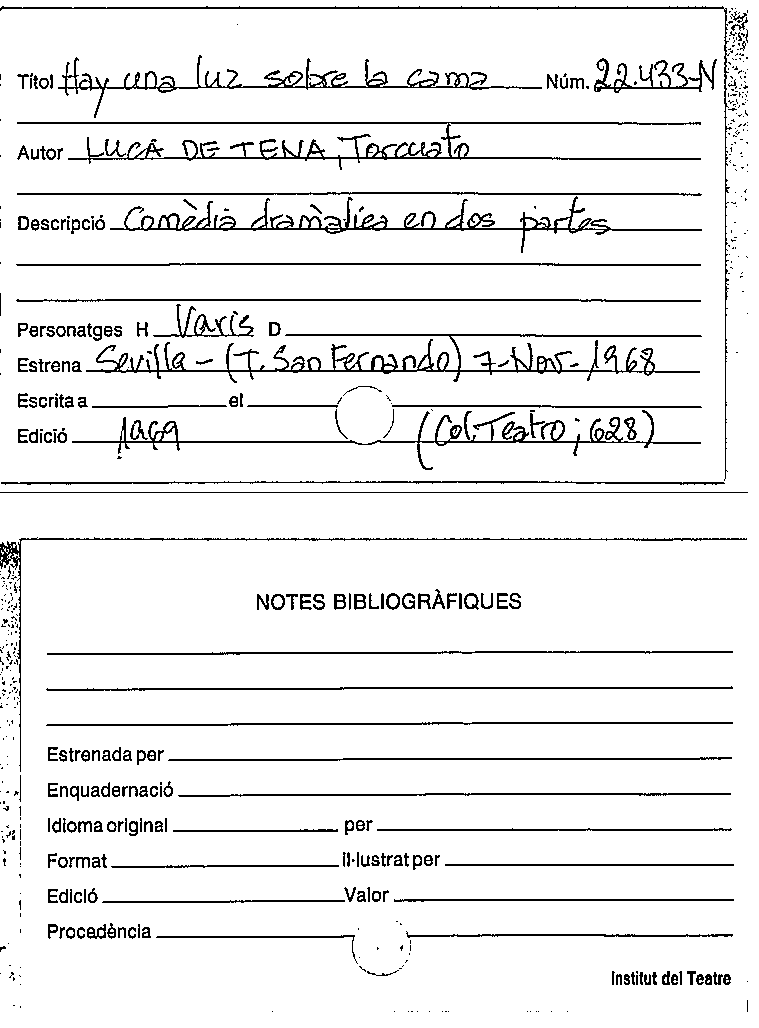 Títol Hay una luz sobre la cama Núm. 22.433-N
Autor LUCA DE TENA, Torcuato
Descripció Comèdia dramàtica en dos partes
Personatges H Varis D
Estrena Sevilla - (T. San Fernando) 7-Nov-1968
Escrita a el
Edició 1969 (Col. Teatro; 628)
NOTES BIBLIOGRÀFIQUES
Estrenada per
Enquadernació
Idioma original per
Format Il·lustrat per
Edició Valor
Procedència
Institut del Teatre